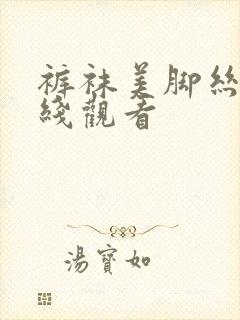 裤袜美脚丝
线觀看
湯寶如